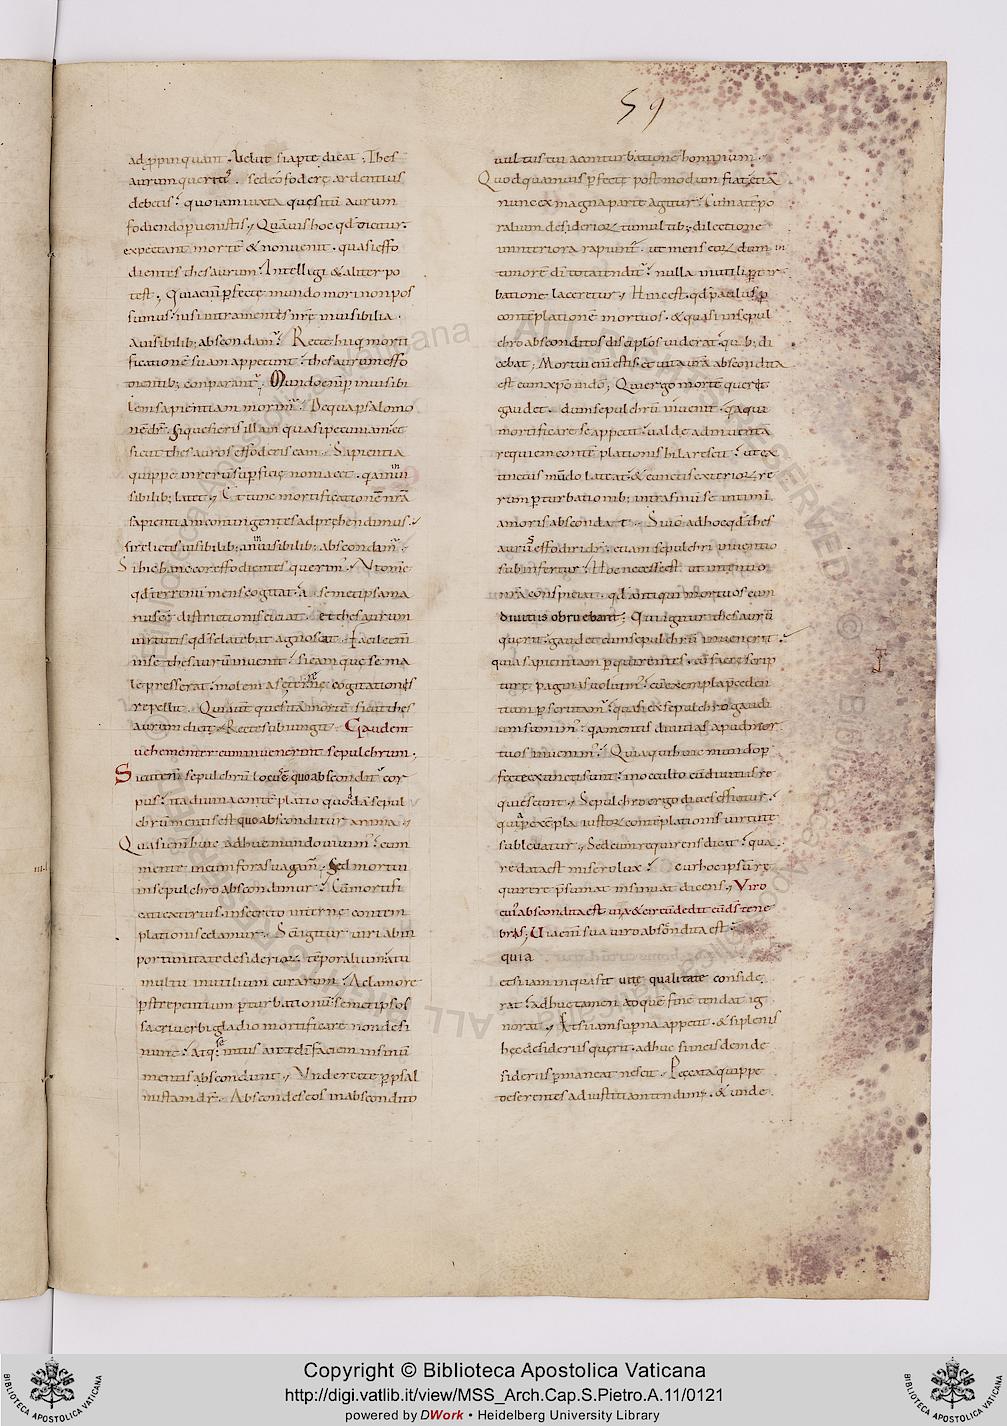 59
adp̄pinquant. Uelut si apte dicat; Thes
aurum queritis. sed eo fodere ardentius
debetis; quo iam iuxta quęsitū aurum
fodiendo puenistis; Quāuis hoc qd̄ dicitur.
expectant mortē & non uenit. quasi effo
dientes thesaurum; Intellegi & aliter po
test; Quia eni pfecte mundo mori non pos
sumus; nisi intra mentis nr̄e inuisibilia.
a uisibilib; abscondam'; Recte hi qui morti
ficationē suam appetunt; thesaurum effo
dientib; conparant'; Mundo eni p inuisibi
lem sapientiam morim'; De qua p salomo
nē dr̄. si quesieris illam quasi pecuniam. et
sicut thesauros effoderis eam; Sapientia
quippe in rerū supficię non iacet. quia in in
uisibilib; latet; Et tunc mortificationē nr̄a
sapientiam contingentes adprehendimus;
si relictis uisibilib; in inuisibilib; abscondam';
Si hanc cor effodientes querim'; Ut omē
qd̄ terrenū mens cogitat. a semetipsa ma
nu scē districtionis eiciat. et thesaurum
uirtutis qd̄ se latebat agnoscat; Facile eni
in se thesaurū inuenit; si eam quę se ma
le presserat. molem a se terrenę cogitationis
repellit; Quia uē quesitā mortē sicut thes
aurum dicit; Recte subiungit; Gaudent
uehementer cum inuenerint sepulchrum.
Sicut eni sepulchrū locus ē quo absconditur cor
pus; ita diuina contēplatio quoddā sepul
chrū mentis est quo absconditur anima;
Quasi eni huic adhuc mundo uiuim'; cum
mente in eum foras uagam'; Sed mortui
in sepulchro abscondimur; Cū mortifi
cati exterius. in secreto internę contem
plationis celamur; Sci igitur uiri ab in
portunitate desideriorū temporaliū. a tu
multu inutilium curarum; A clamore
pstrepentium pturbationū semetipsos
sacri uerbi gladio mortificare non desi
nunt; Atq; intus se ante dī faciem in sinū
mentis abscondunt; Unde recte p psal
mistam dr̄. Abscondes eos in abscondito
uultus tui a conturbatione hominum;
Quod quamuis pfecte postmodum fiat; etiā
nunc ex magna parte agitur; Cum a tēpo
ralium desideriorū tumultib; dilectione
in interiora rapiunt'; ut mens eorū dum in
amorē dī tota tendit'; nulla inutili ptur
batione laceretur; Hinc est. qd̄ paulus p
contēplationē mortuos. & quasi in sepul
chro absconditos discipłos uiderat. quib; di
cebat; Mortui eni estis. et uita urā abscondita
est cum xp̄o in dō; Qui ergo mortē querit
gaudet. dum sepulchrū inuenit. quia qui
mortificare se appetit; ualde ad inuentā
requiem contēplationis hilarescit; ut ex
tinctus mūdo lateat. & cunctis exteriorū re
rum pturbationib; intra sinū se intimi
amoris abscondat; Si uō ad hoc qd̄ thes
aurus effodi dr̄. etiam sepulchri inuentio
subinfertur; Hoc necesse est ut in intentio
nrā conspiciat. qd̄ antiqui mortuos cum
diuitiis obruebant; Qui igitur thesaurū
querit. gaudet cum sepulchrū inuenerit
quia sapientiam pquirentes. cū sacrę scrip
turę paginas uoluim'; cū exempla p̄ceden
tium pscrutam'; quasi ex sepulchro gaudi
um sumim'; quia mentis diuitias apud mor
tuos inuenim'; Quia qui huic mundo p
fecte extincti sunt; in occulto cū diuitiis re
quiescunt; Sepulchro ergo diues efficitur;
qui p exēpla iustorū contēplationis uirtute
subleuatur; Sed cum requirens dicat; qua
re data est misero lux; cur hoc ipsū re
quirere p̄sumat insinuat dicens; Viro
cui' abscondita est uia & circūdedit eū ds tene
bris; Uia eni sua uiro absc̄ondita est;
quia
etsi iam in qua sit uitę qualitate conside
rat; adhuc tamen ad quē finē tendat ig
norat; Etsi iam supna appetit. & si plenis
hęc desideriis querit. adhuc si in eisdem de
sideriis pmaneat nescit; Peccata quippe
deserentes ad iustitiam tendim'. & unde
Copyright © Biblioteca Apostolica Vaticana
http://digi.vatlib.it/view/MSS_Arch.Cap.S.Pietro.A.11/0121
powered by DWork • Heidelberg University Library